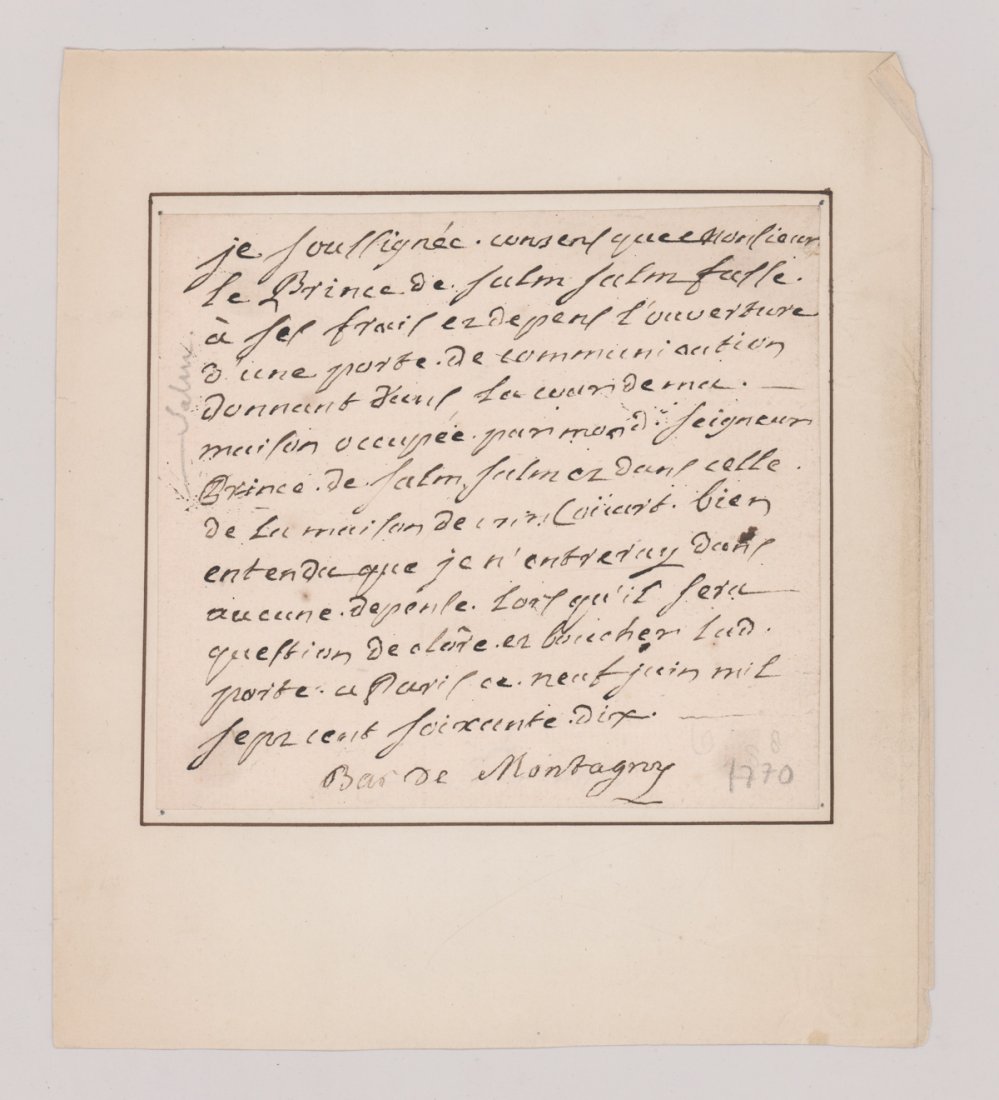 je soussignée. consens que Monsieur
le Prince de. Salm Salm fasse.
à ses frais et depens l'ouverture
d'une porte. de communication
donnant dans La cour de ma. —
maison occupée. par mond.: Seigneur
Prince. de. Salm Salm et dans celle.
de La maison de. bien
entendu que je n'entreray dans
aucune. depense. Lors qu'il sera
question de clôre. et boucher lad.
porte. a Paris ce. neuf juin mil
sept cent soixante. dix. —
Bar de Montagny
Salm.
1770